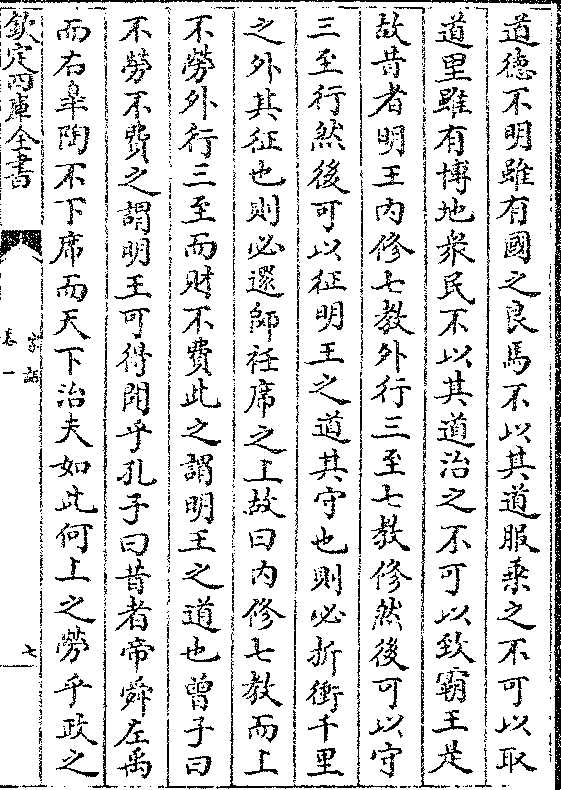 道德不明雖有國之良馬不以其道服乗之不可以取
道里雖有博地衆民不以其道治之不可以致霸王是
故昔者明王内修七教外行三至七教修然後可以守
三至行然後可以征明王之道其守也則必折衝千里
之外其征也則必還師衽席之上故曰内修七教而上
不勞外行三至而財不費此之謂明王之道也曾子曰
不勞不費之謂明王可得聞乎孔子曰昔者帝舜左禹
而右臯陶不下席而天下治夫如此何上之勞乎政之
欽定四庫全書
家語
卷一
七